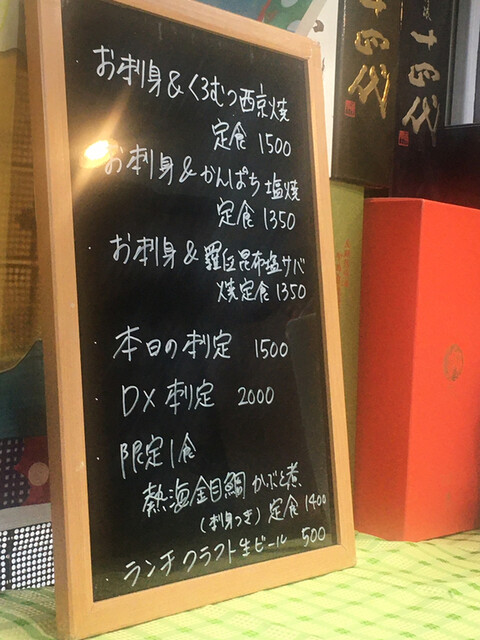 お刺身&くろむつ西京焼
定食 1500
お刺身&かんぱち塩焼
定食 1350
お刺身&羅臼昆布塩サバ
焼定食 1350
本日の刺定 1500
DX 刺定 2000
限定1食
熱海金目鯛かぶと煮
(刺身つき) 定食 1400
ランチクラフト生ビール 500
十四代
十四代